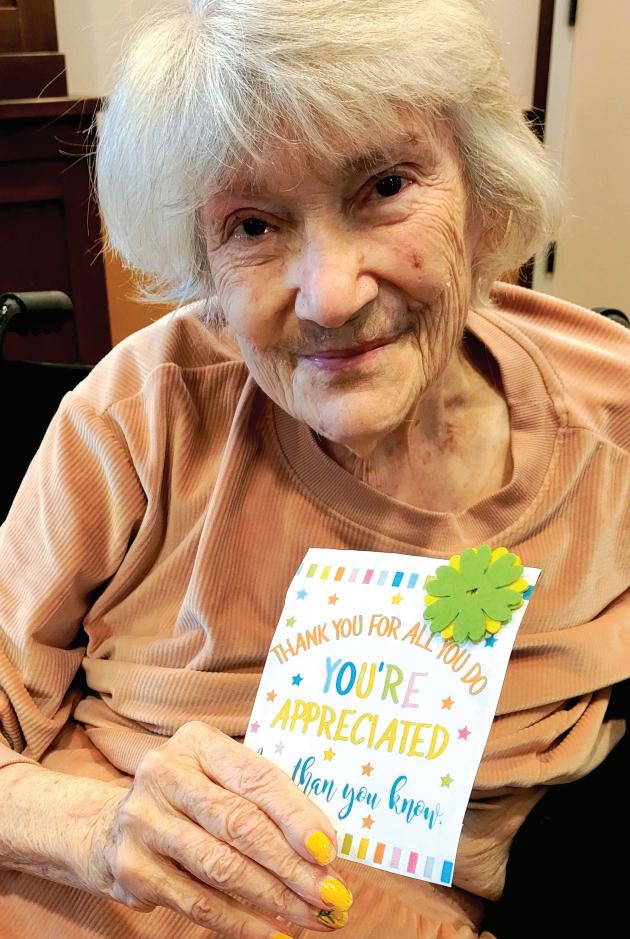 THANK YOU FOR ALL YOU DO
YOU'RE
APPRECIATED
than you know.